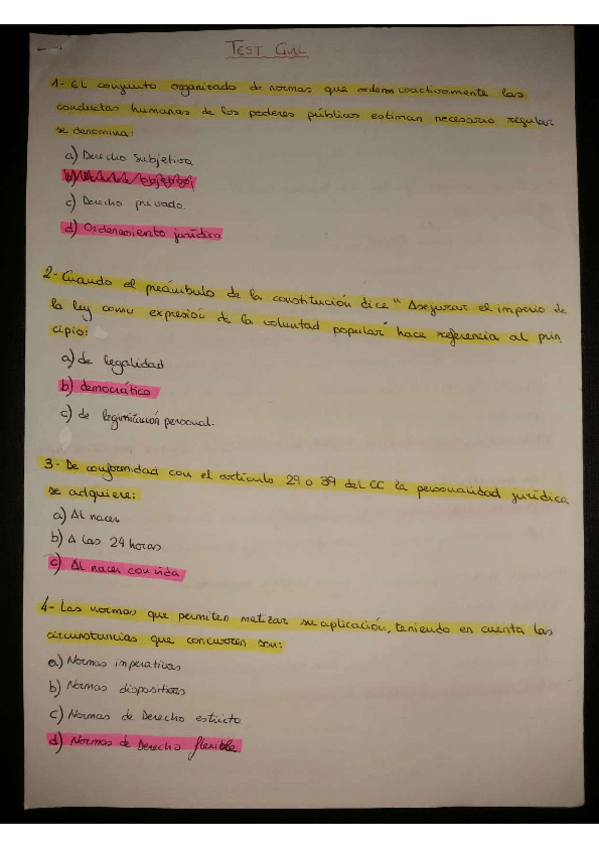 TEST CIVIL
1- El conjunto organizado de normas que ordenan coactivamente las
conductas humanas de los poderes públicos estiman necesario regular
se denomina:
a) Derecho Subjetivo
b) objetivo
c) Derecho privado.
d) Ordenamiento jurídico
2- Cuando el preámbulo de la constitución dice "Asegurar el imperio de
la ley como expresión de la voluntad popular" hace referencia al prin
cipio:
a) de legalidad
b) democrático
c) de legimitación personal.
3- De conformidad con el artículo 29 o 39 del CC la personalidad jurídica
se adquiere:
a) Al nacer
b) A las 24 horas
c) Al nacer con vida
4- Las normas que permiten matizar su aplicación, teniendo en cuenta las
circunstancias que concurren son:
a) Normas imperativas
b) Normas dispositivas
c) Normas de Derecho estricto
d) Normas de Derecho flexible